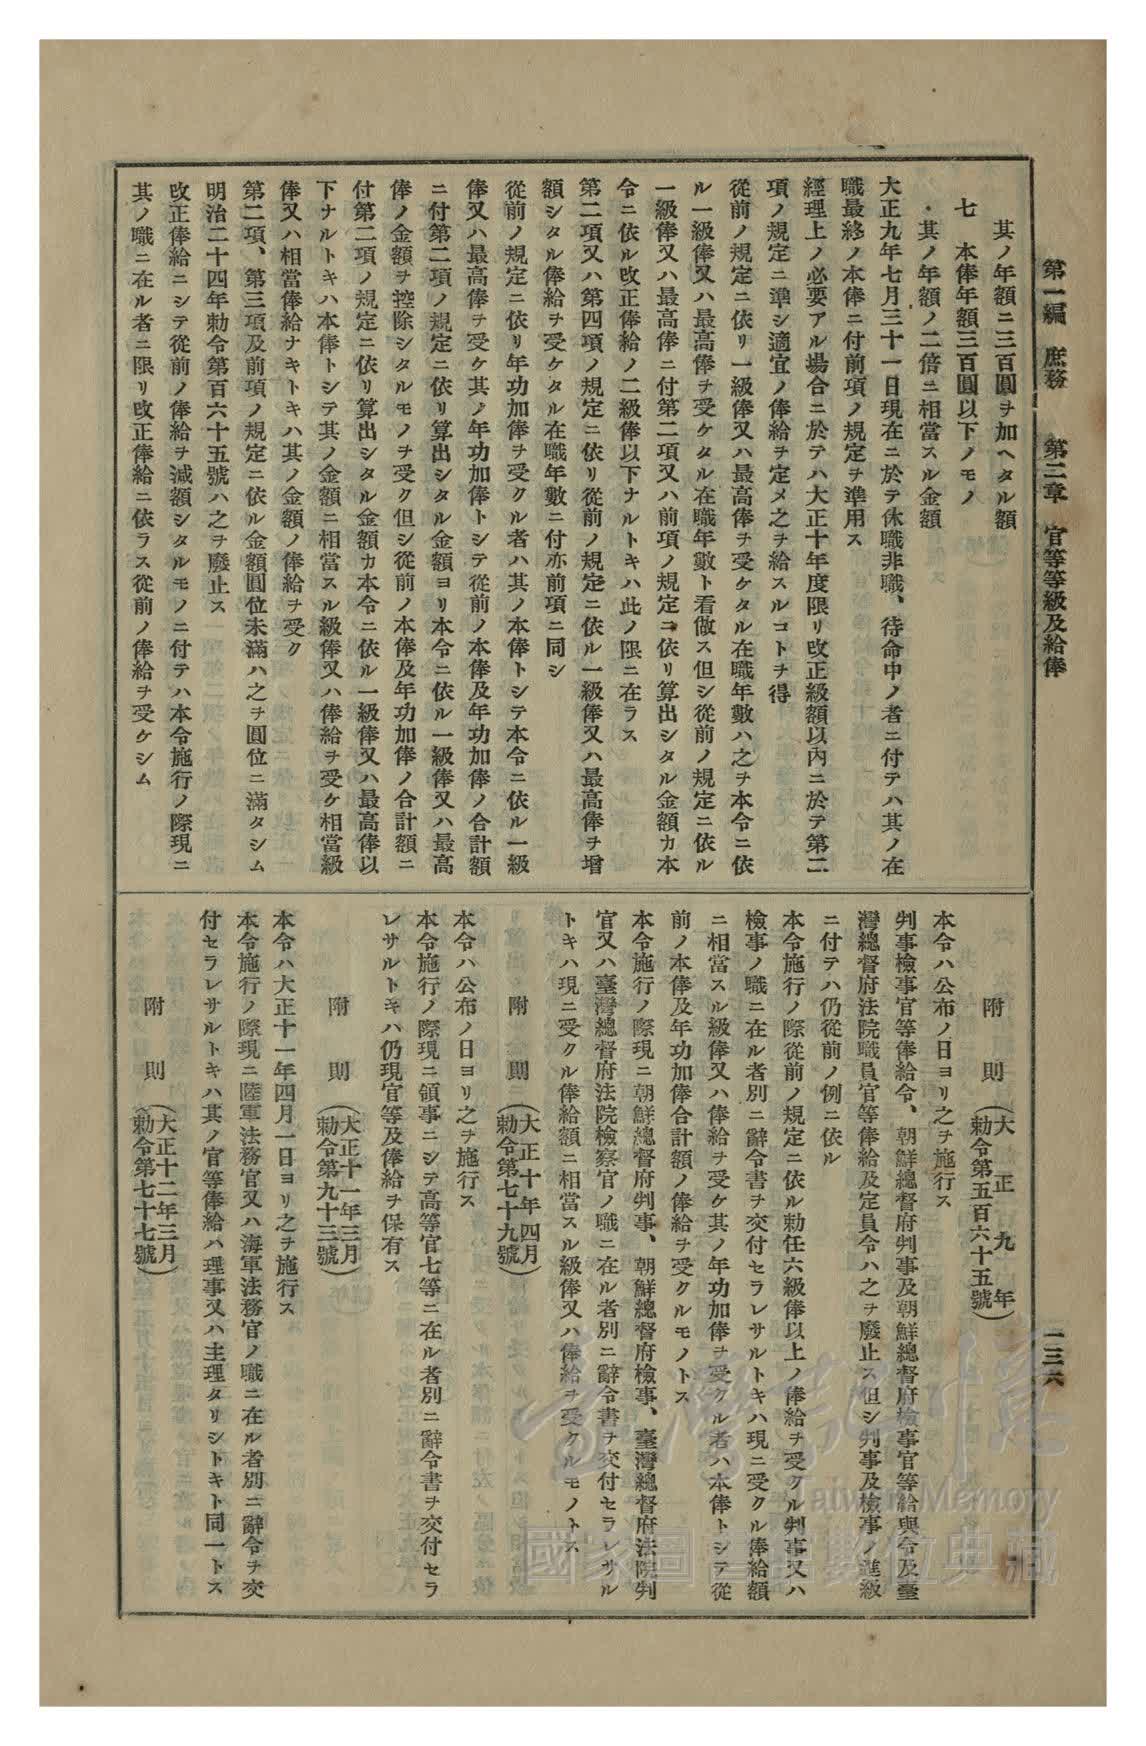 第一編　庶務　　第二章　官等等級及給俸
一三六
其ノ年額ニ三百圓ヲ加ヘタル額
七　本俸年額三百圓以下ノモノ
其ノ年額ノ二倍ニ相當スル金額
大正九年七月三十一日現在ニ於テ休職非職、待命中ノ者ニ付テハ其ノ在
職最終ノ本俸ニ付前項ノ規定ヲ準用ス
經理上ノ必要アル場合ニ於テハ大正十年度限リ改正級額以内ニ於テ第二
項ノ規定ニ準シ適宜ノ俸給ヲ定メ之ヲ給スルコトヲ得
從前ノ規定ニ依リ一級俸又ハ最高俸ヲ受ケタル在職年數ハ之ヲ本令ニ依
ル一級俸又ハ最高俸ヲ受ケタル在職年數ト看做ス但シ從前ノ規定ニ依ル
一級俸又ハ最高俸ニ付第二項又ハ前項ノ規定ニ依リ算出シタル金額カ本
令ニ依ル改正俸給ノ二級俸以下ナルトキハ此ノ限ニ在ラス
第二項又ハ第四項ノ規定ニ依リ從前ノ規定ニ依ル一級俸又ハ最高俸ヲ增
額シタル俸給ヲ受ケタル在職年數ニ付亦前項ニ同シ
從前ノ規定ニ依リ年功加俸ヲ受クル者ハ其ノ本俸トシテ本令ニ依ル一級
俸又ハ最高俸ヲ受ケ其ノ年功加俸トシテ從前ノ本俸及年功加俸ノ合計額
ニ付第二項ノ規定ニ依リ算出シタル金額ヨリ本令ニ依ル一級俸又ハ最高
俸ノ金額ヲ控除シタルモノヲ受ク但シ從前ノ本俸及年功加俸ノ合計額ニ
付第二項ノ規定ニ依リ算出シタル金額カ本令ニ依ル一級俸又ハ最高俸以
下ナルトキハ本俸トシテ其ノ金額ニ相當スル級俸又ハ俸給ヲ受ケ相當級
俸又ハ相當俸給ナキトキハ其ノ金額ノ俸給ヲ受ク
第二項、第三項及前項ノ規定ニ依ル金額圓位未滿ハ之ヲ圓位ニ滿タシム
明治二十四年勅令第百六十五號ハ之ヲ廢止ス
改正俸給ニシテ從前ノ俸給ヲ減額シタルモノニ付テハ本令施行ノ際現ニ
其ノ職ニ在ル者ニ限リ改正俸給ニ依ラス從前ノ俸給ヲ受ケシム
附　則（大正九年勅令第五百六十五號）
本令ハ公布ノ日ヨリ之ヲ施行ス
判事檢事官等俸給令、朝鮮總督府判事及朝鮮總督府檢事官等給與令及臺
灣總督府法院職員官等俸給及定員令ハ之ヲ廢止ス但シ判事及檢事ノ進級
ニ付テハ仍從前ノ例ニ依ル
本令施行ノ際從前ノ規定ニ依ル勅任六級俸以上ノ俸給ヲ受クル判事又ハ
檢事ノ職ニ在ル者別ニ辭令書ヲ交付セラレサルトキハ現ニ受クル俸給額
ニ相當スル級俸又ハ俸給ヲ受ケ其ノ年功加俸ヲ受クル者ハ本俸トシテ從
前ノ本俸及年功加俸合計額ノ俸給ヲ受クルモノトス
本令施行ノ際現ニ朝鮮總督府判事、朝鮮總督府檢事、臺灣總督府法院判
官又ハ臺灣總督府法院檢察官ノ職ニ在ル者別ニ辭令書ヲ交付セラレサル
トキハ現ニ受クル俸給額ニ相當スル級俸又ハ俸給ヲ受クルモノトス
附　則（大正十年四月勅令第七十九號）
本令ハ公布ノ日ヨリ之ヲ施行ス
本令施行ノ際現ニ領事ニシテ高等官七等ニ在ル者別ニ辭令書ヲ交付セラ
レサルトキハ仍現官等及俸給ヲ保有ス
附　則（大正十一年三月勅令第九十三號）
本令ハ大正十一年四月一日ヨリ之ヲ施行ス
本令施行ノ際現ニ陸軍法務官又ハ海軍法務官ノ職ニ在ル者別ニ辭令ヲ交
付セラレサルトキハ其ノ官等俸給ハ理事又ハ主理タリシトキト同一トス
附　則（大正十二年三月勅令第七十七號）
臺灣記憶
Taiwan Memory
國家圖書館數位典藏